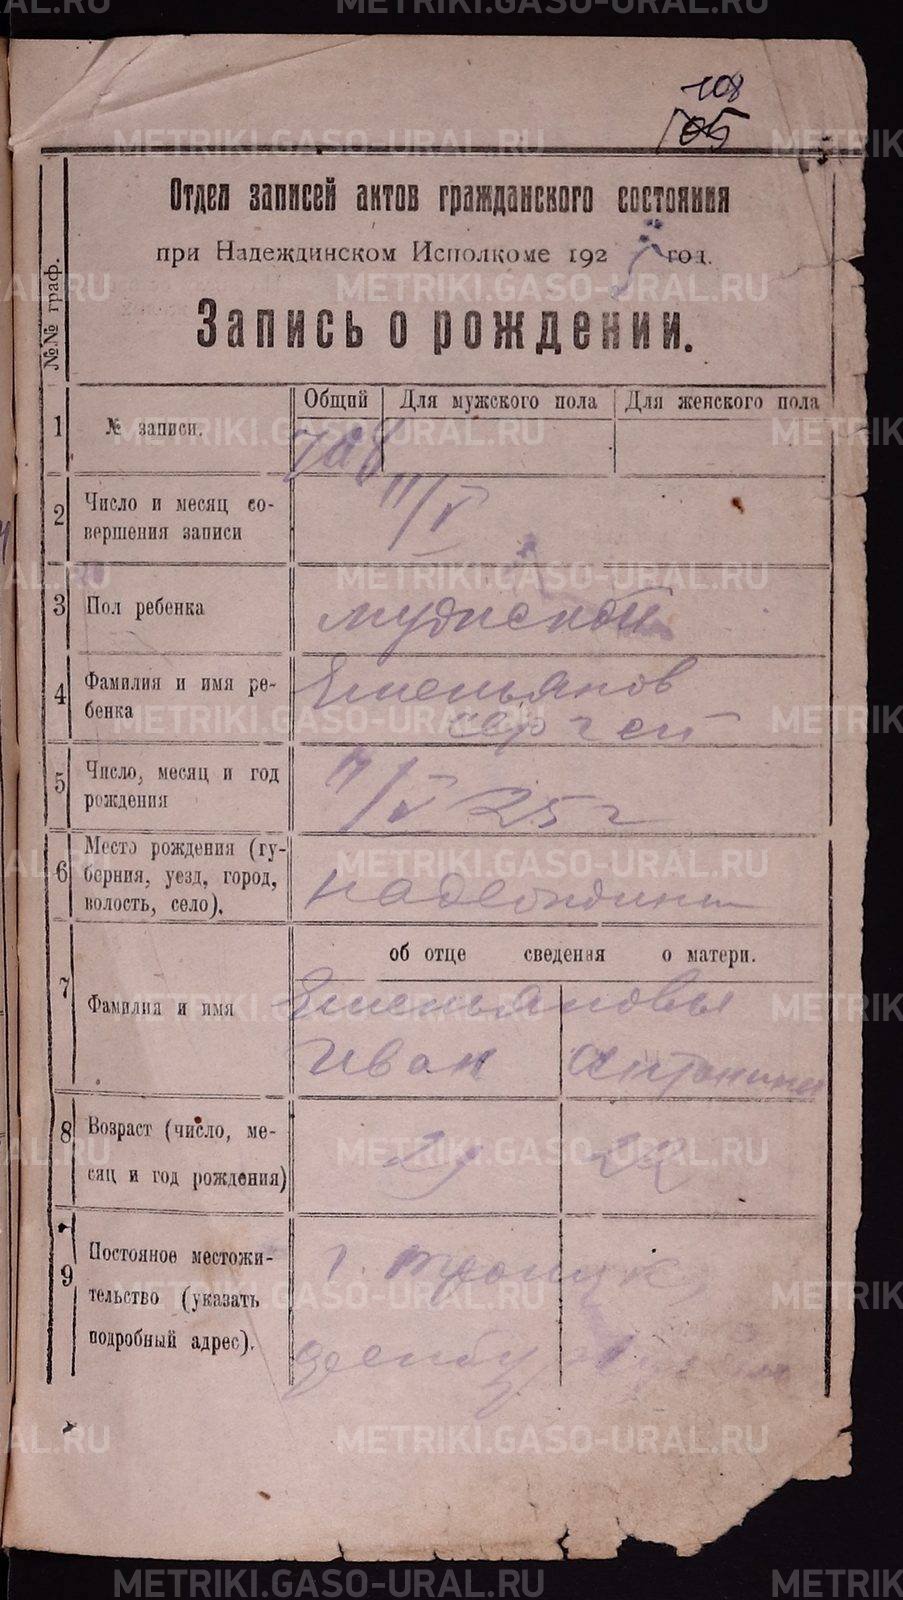 108
105
Отдел записей актов гражданского состояния
при Надеждинском Исполкоме 192 5 год.
Запись о рождении.
№№ граф.
Общий Для мужского пола Для женского пола
1 № записи. 708
2 Число и месяц со-
вершения записи
11/V
3 Пол ребенка мужской
4 Фамилия и имя ре-
бенка
Емельянов
Сергей
5 Число, месяц и год
рождения
/V 25 г
6 Место рождения (гу-
берния, уезд, город,
волость, село).
Надеждинск
об отце сведения о матери.
7 Фамилия и имя
Емельяновы
Иван Антонина
8 Возраст (число, ме-
сяц и год рождения)
22
9 Постояное местожи-
тельство (указать
подробный адрес).
г. Троицк
METRIKI.GASO-URAL.RU